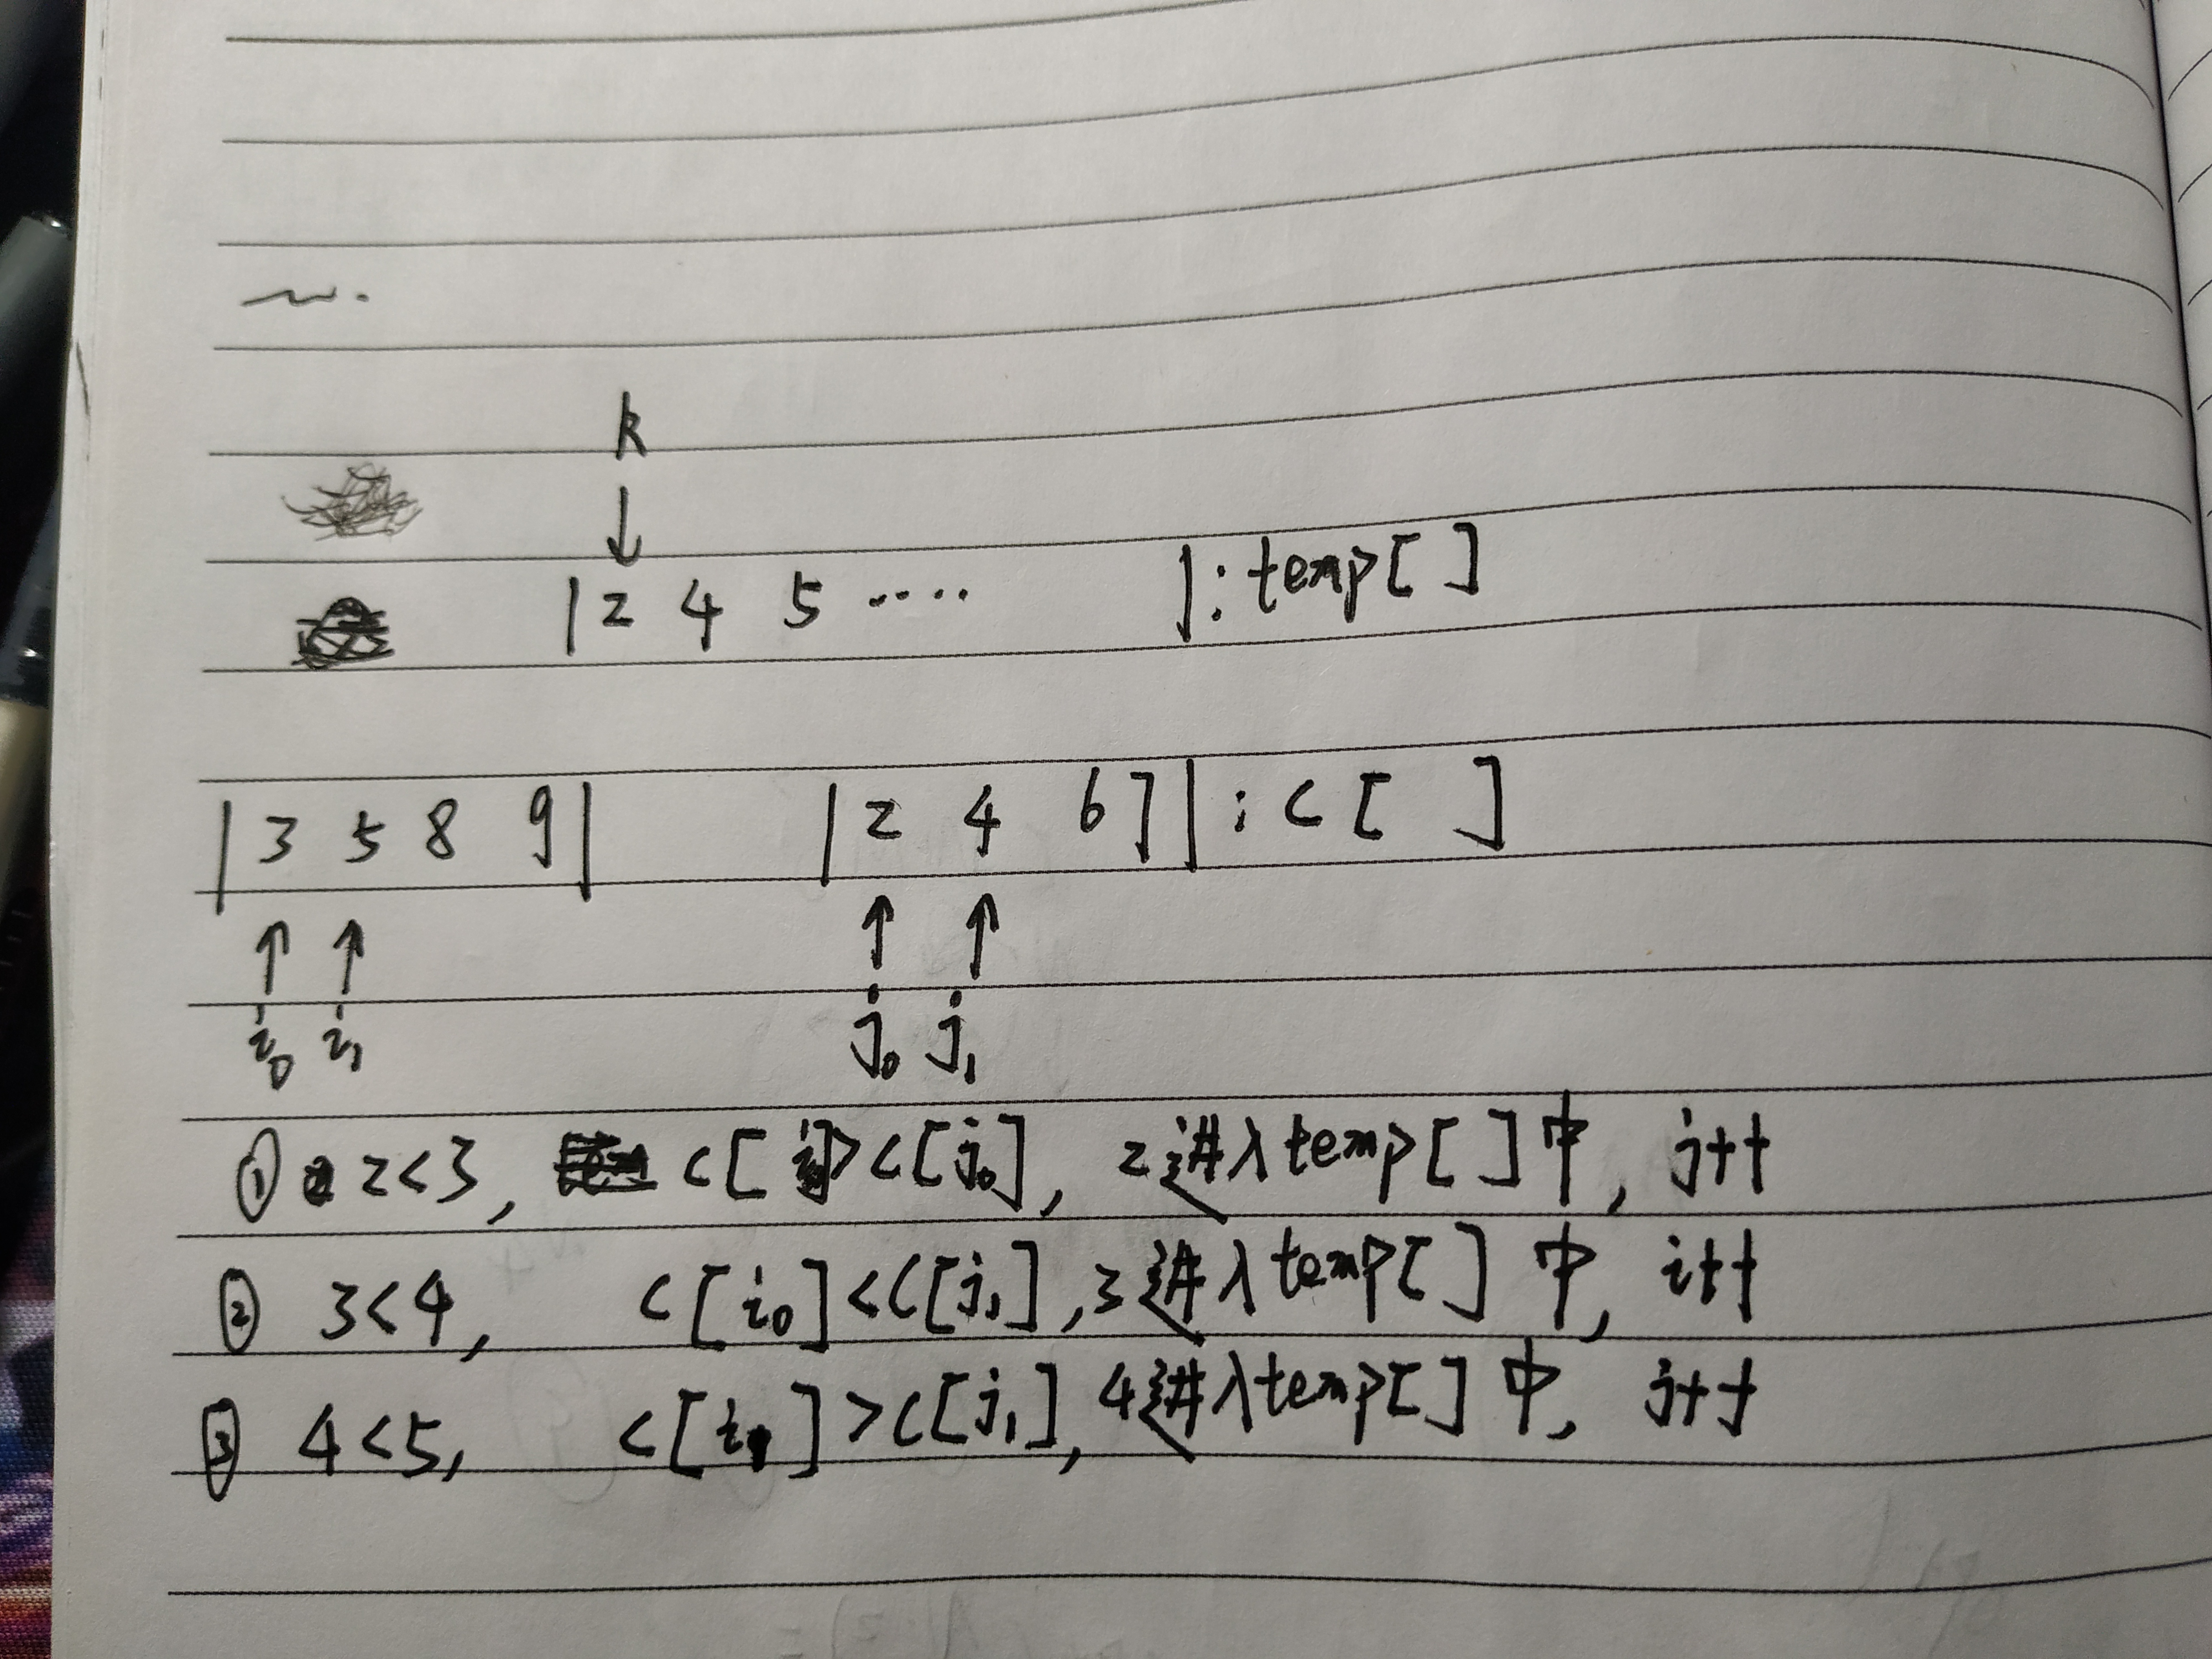 k
↓
| 2 4 5 ····· |: temp[ ]
| 3 5 8 9 | | 2 4 6 7 | : C [ ]
↑ ↑ ↑ ↑
i₀ i₁ j₀ j₁
① 2<3, C[i]>C[j₀], 2进入temp[ ]中, j++
② 3<4, C[i₀]<C[j₁], 3进入temp[ ]中, i++
③ 4<5, C[i₁]>C[j₁], 4进入temp[ ]中, j++